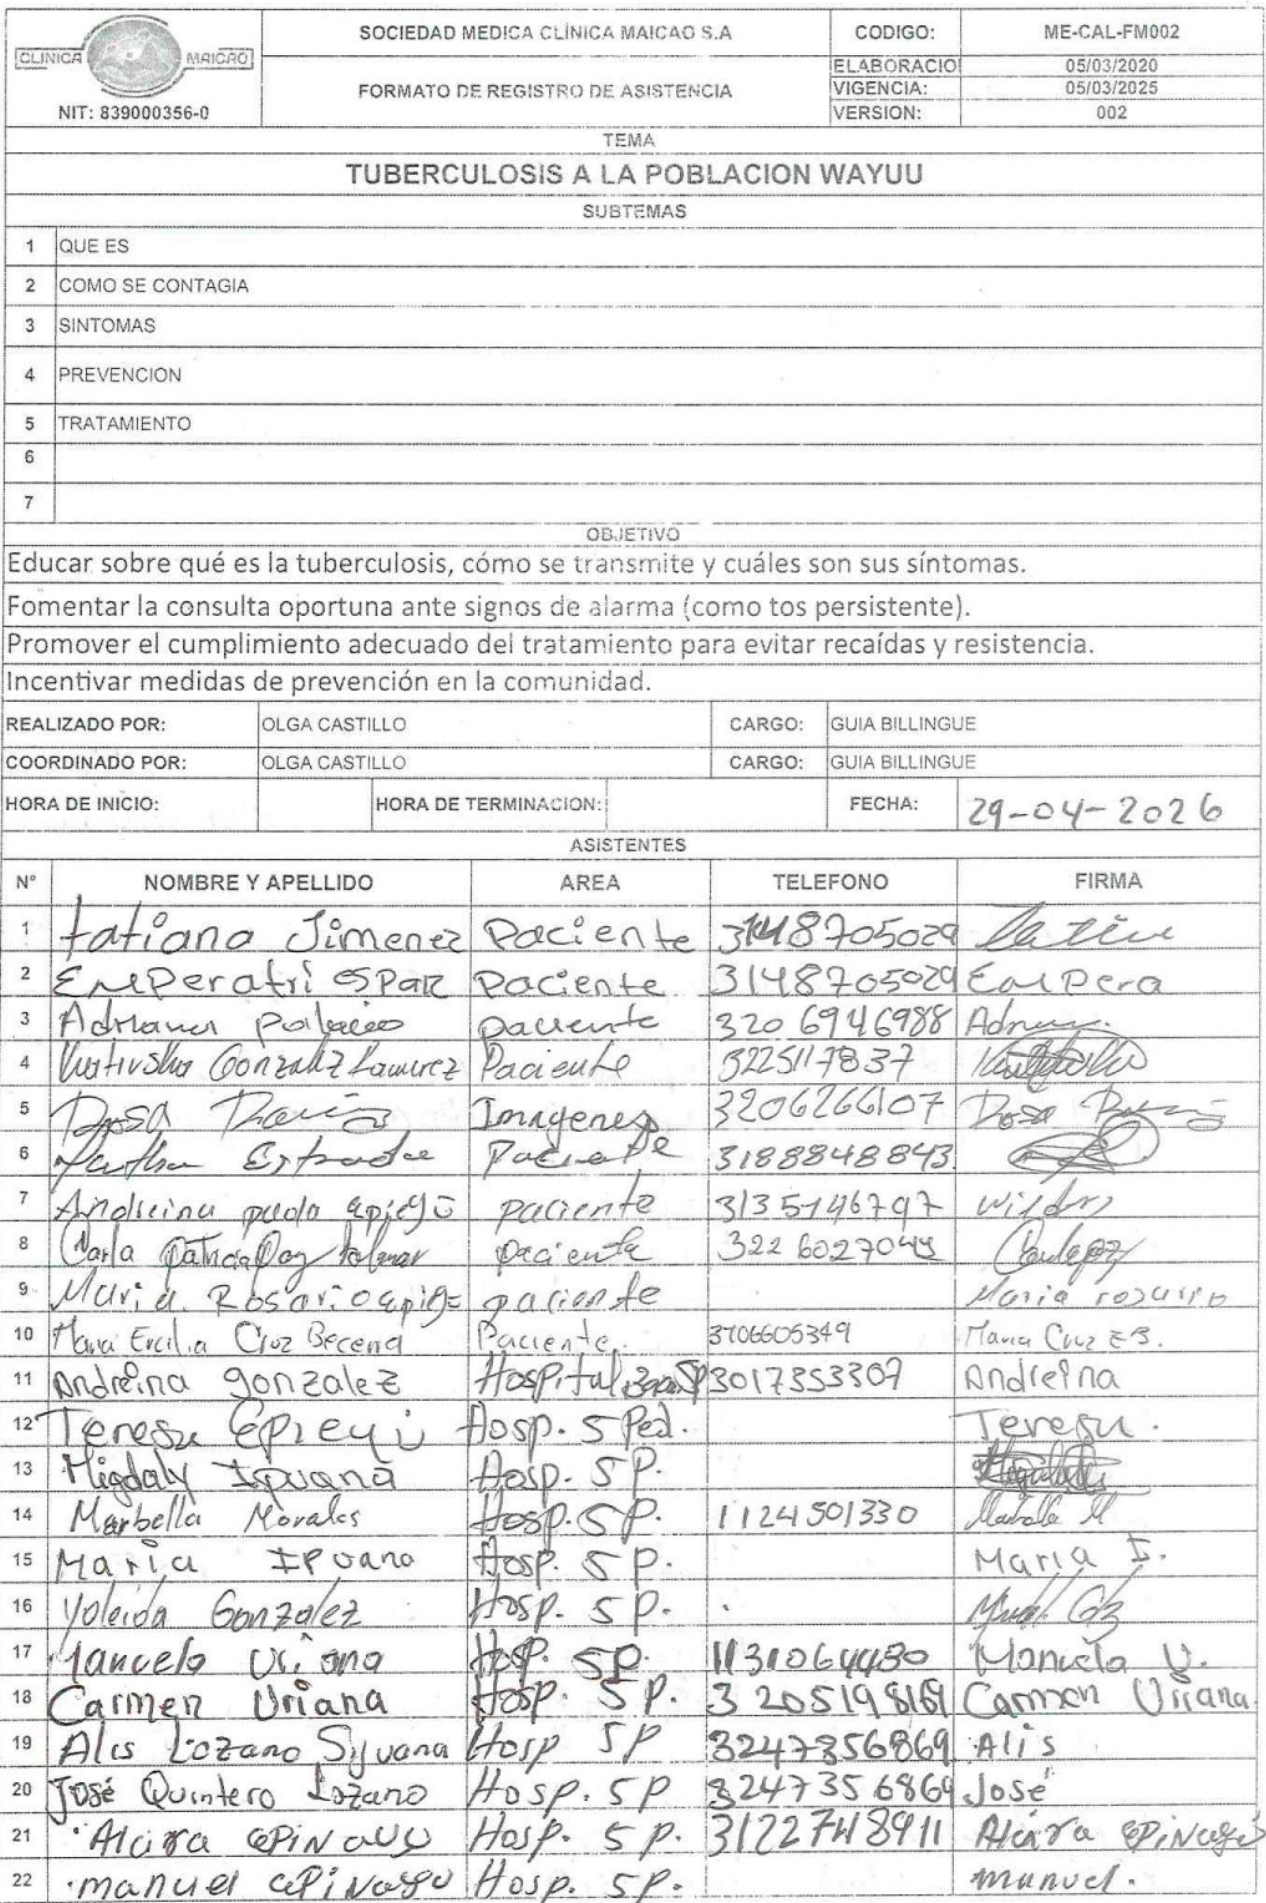 CLINICA MAICAO
NIT: 839000356-0
SOCIEDAD MEDICA CLÍNICA MAICAO S.A
FORMATO DE REGISTRO DE ASISTENCIA
CODIGO: ME-CAL-FM002
ELABORACIO 05/03/2020
VIGENCIA: 05/03/2025
VERSION: 002
TEMA
TUBERCULOSIS A LA POBLACION WAYUU
SUBTEMAS
1 QUE ES
2 COMO SE CONTAGIA
3 SINTOMAS
4 PREVENCION
5 TRATAMIENTO
6
7
OBJETIVO
Educar sobre qué es la tuberculosis, cómo se transmite y cuáles son sus síntomas.
Fomentar la consulta oportuna ante signos de alarma (como tos persistente).
Promover el cumplimiento adecuado del tratamiento para evitar recaídas y resistencia.
Incentivar medidas de prevención en la comunidad.
REALIZADO POR: OLGA CASTILLO CARGO: GUIA BILLINGUE
COORDINADO POR: OLGA CASTILLO CARGO: GUIA BILLINGUE
HORA DE INICIO: HORA DE TERMINACION: FECHA: 29-04-2026
ASISTENTES
N° NOMBRE Y APELLIDO AREA TELEFONO FIRMA
1 tatiana Jimenez Paciente 3148705029
2 Emperatri Paciente 3148705029
3 Adriana Palacio paciente 3206946988
4 Gonzalez Ramirez Paciente 3225117837
5 Rosa Imagenes 3206266107 Rosa
6 Estrada Paciente 3188848843
7 Andreina paciente 3135146797
8 Carla Patricia paciente
9 Maria Rosario paciente Maria
10 Maria Ercilia Cruz Becerra Paciente. Maria Cruz E B.
11 Andreina gonzalez Hospital 3017353307 Andreina
12 Teresa Hosp. 5 Ped. Teresa.
13 Migdaly Ipuana Hosp. 5 P.
14 Marbella Morales Hosp. 5 P. 1124501330
15 Maria Ipuana Hosp. 5 P. Maria I.
16 Yoleida Gonzalez Hosp. 5 P.
17 Manuela Uriana Hosp. 5 P. Manuela U.
18 Carmen Uriana Hosp. 5 P. 3205198169 Carmen Uriana
19 Alis Lozano Hosp 5 P 3247356869 Alis
20 José Quintero Lozano Hosp. 5 P 3247356869 José
21 Hosp. 5 P.
22 manuel Hosp. 5 P. manuel.